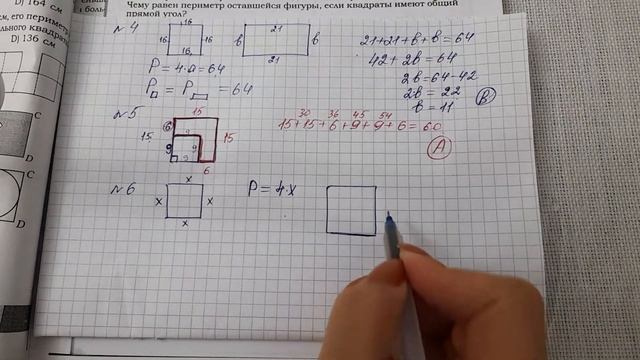 D) 164 см
Чему равен периметр оставшейся фигуры, если квадраты имеют общий
прямой угол?
D) 136 см
C
D
C
D
№4
16
16 16
16
21
в в
21
P = 4·a = 64
P□ = P▭ = 64
21+21+в+в=64
42+2в=64
2в=64-42
2в=22
в=11
B
№5
15
6
15
9 9
15
6
30 36 45 54
15+15+6+9+9+6=60
A
№6
x
x x
x
P=4·x